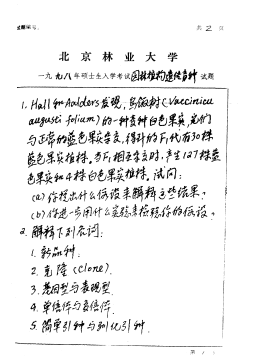 共 2 页
北京林业大学
一九九八年硕士生入学考试园林植物遗传育种试题
1. Hall和Aalders发现,乌饭树(Vaccinicu
augusti folium)的一种变种白色果实,它们
与正常的蓝色果实杂交,得到的F₁代有30株
蓝色果实植株,当F₁相互杂交时,产生127株蓝
色果实和4株白色果实植株,试问:
(a)你提出什么假设来解释这些结果?
(b)你进一步用什么实验来检验你的假设?
2. 解释下列名词:
1. 新品种.
2. 克隆(clone).
3. 基因型与表现型
4. 单倍体与多倍体.
5. 简单引种与驯化引种.
第 页